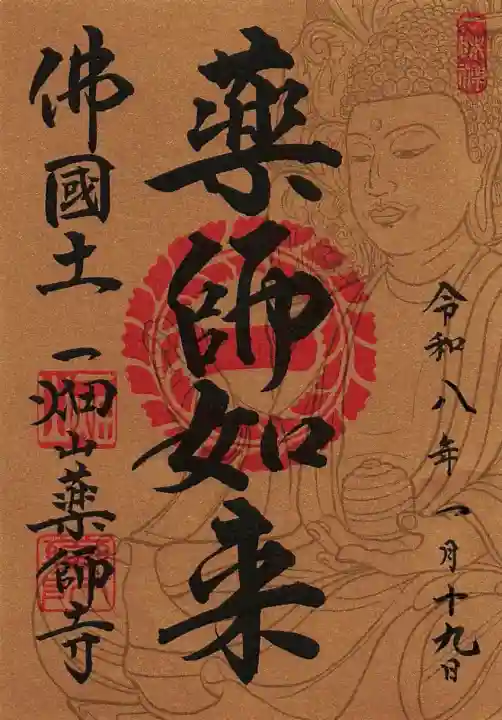 令和八年一月十九日
薬師如来
佛國土
一畑山薬師寺